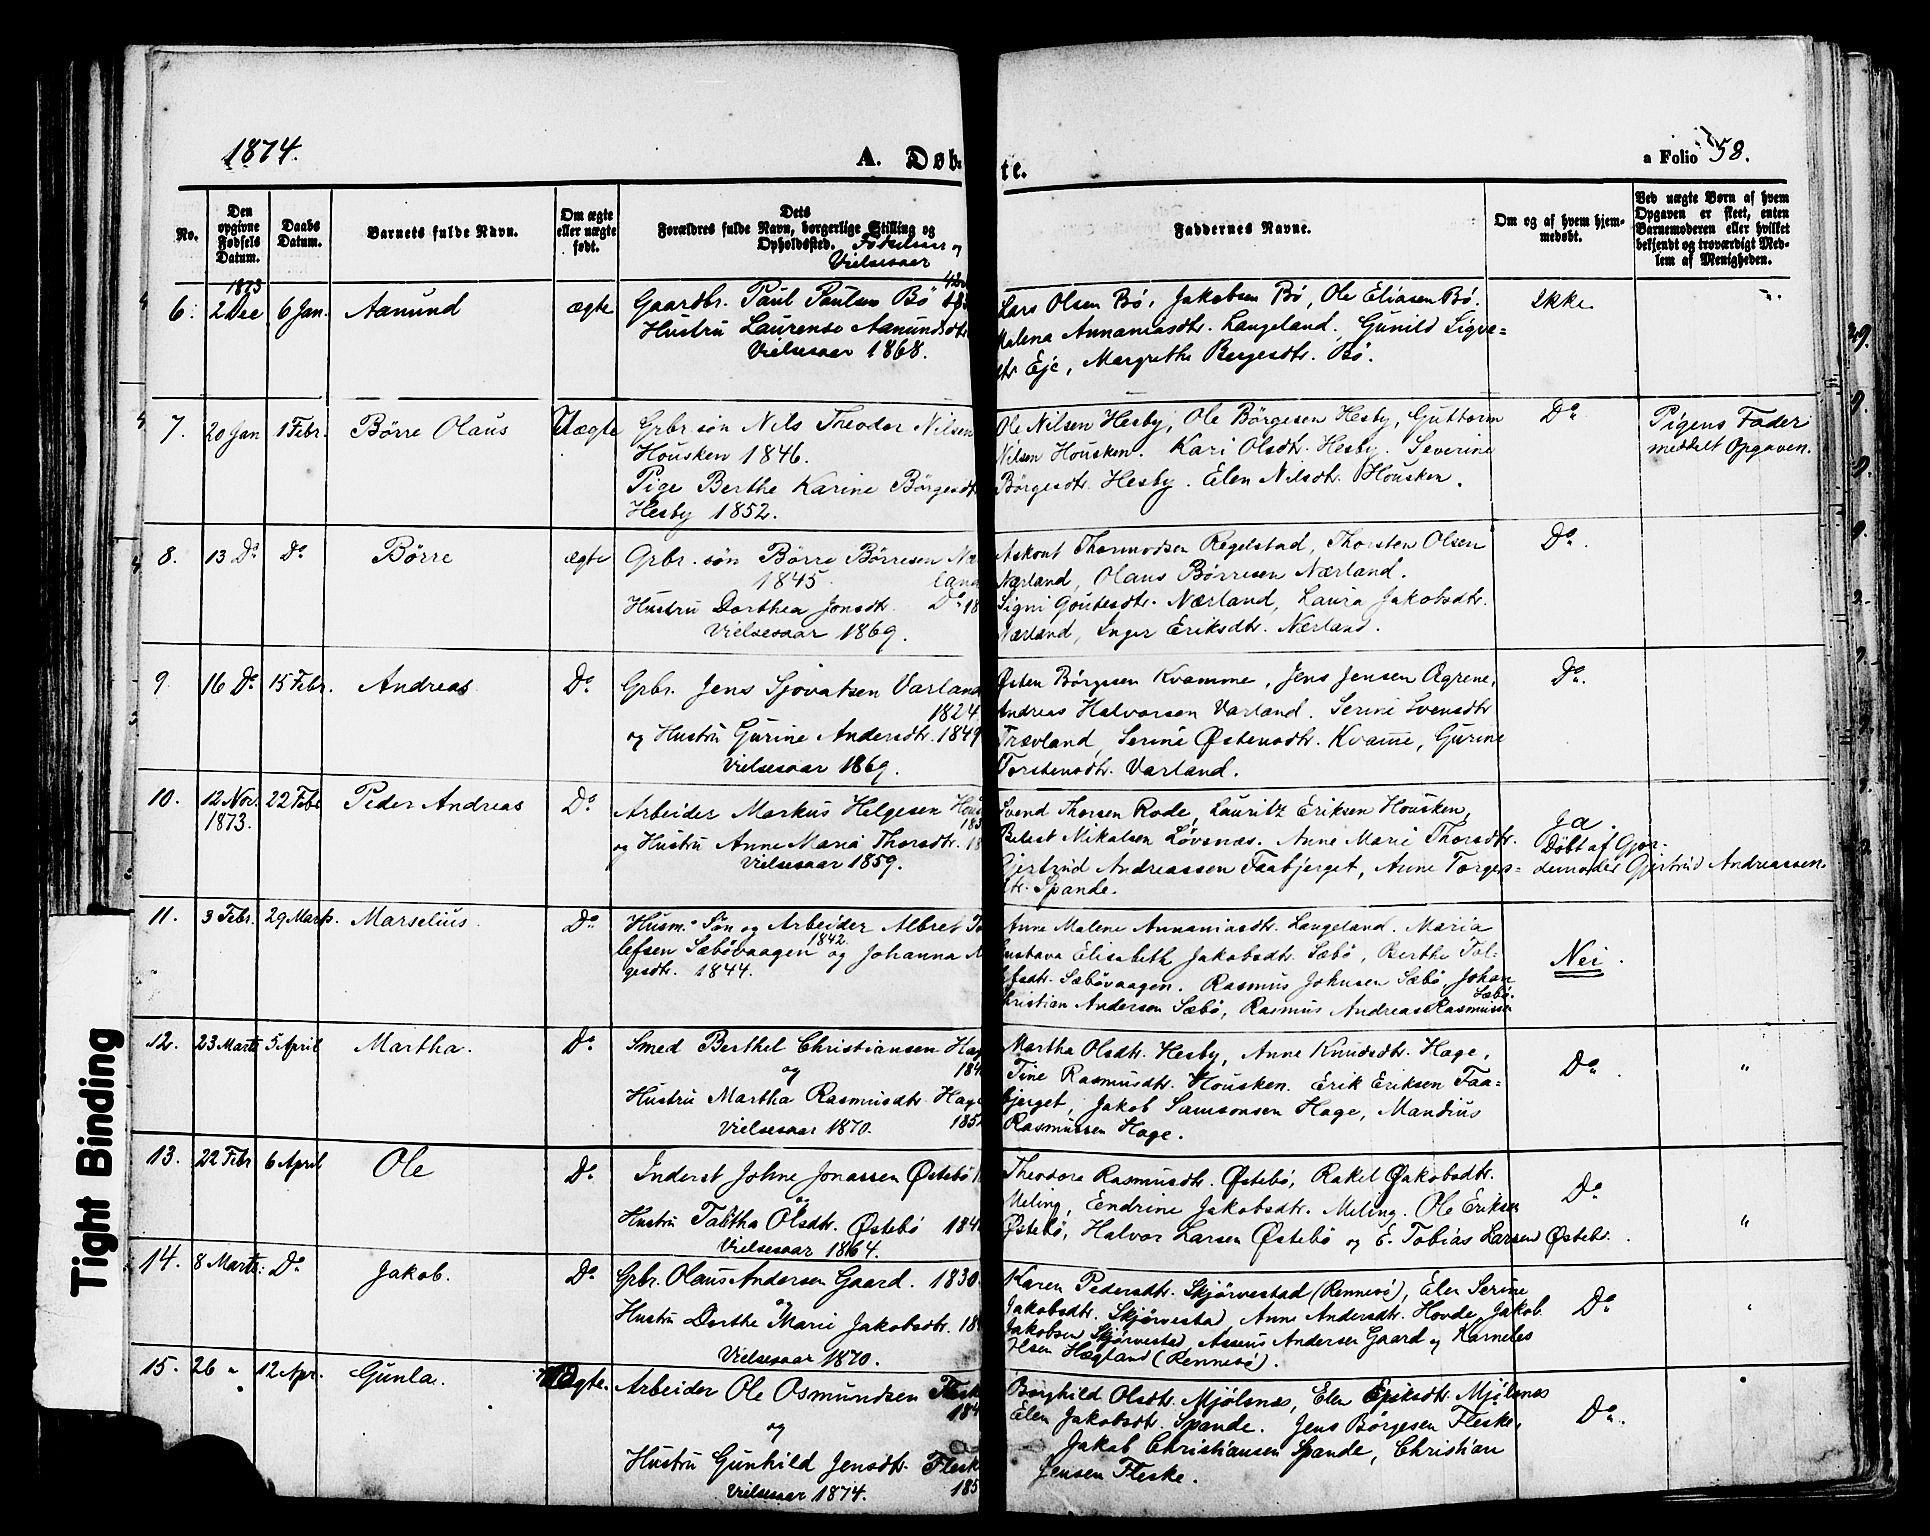 1874.
A. Døb-
te.
a Folio 58.
No.
Den opgivne Fødsels Datum.
Daabs Datum.
Barnets fulde Navn.
Om ægte eller uægte født.
Dets Forældres fulde Navn, borgerlige Stilling og Opholdssted. Fødselsaar og Vielsesaar
Faddernes Navne.
Om og af hvem hjemmedøbt.
Ved uægte Børn af hvem Opgaven er skeet, enten Barnemoderen eller hvilket bekjendt og troværdigt Medlem af Menigheden.
1873
6. 2 Dec 6 Jan. Aanund ægte
Gaardbr. Paul Paulsen Bø
Hustru Laurense Aanundsdtr
Vielsesaar 1868.
Lars Olsen Bø, Jakobsen Bø, Ole Eliasen Bø.
Malena Annaniasdtr. Langeland. Gunild Sigve=
dtr Eje, Margrethe Bergesdtr. Bø.
Ikke
7. 20 Jan 1 Febr. Børre Olaus Uægte
Grbr. søn Nils Theodor Nilsen
Housken 1846.
Pige Berthe Karine Børgesdtr
Hesby 1852.
Ole Nilsen Hesby, Ole Børgesen Hesby, Guttorm
Nilsen Housken. Kari Olsdtr. Hesby. Severine
Børgesdtr. Hesby. Elen Nilsdtr. Housken.
Do.
Pigens Fader
meddelt Opgaven.
8. 13 Do Do Børre ægte
Grbr. søn Børre Børresen Nær
land
1845.
Hustru Dorthea Jonsdtr. Do 18
Vielsesaar 1869.
Askout Thormodsen Regelstad, Thorsten Olsen
Nærland, Olaus Børresen Nærland.
Signi Goutesdtr. Nærland, Laura Jakobsdtr.
Nærland, Inger Eriksdtr. Nærland.
Do.
9 16 Do 15 Febr. Andreas Do.
Grbr. Jens Sjovatsen Varland
1824
og Hustru Gurine Andersdtr. 1849
Vielsesaar 1869.
Østen Børgesen Kvamme, Jens Jensen Agrene,
Andreas Halvorsen Varland. Serine Svensdtr
Trævland, Serine Østensdtr. Kvame, Gurine
Torstensdtr. Varland.
Do.
10. 12 Nov. 22 Febr Peder Andreas Do
1873.
Arbeider Markus Helgesen Hous
og Hustru Anne Maria Thorsdtr. 18
Vielsesaar 1859.
Svend Thorsen Rode, Lauritz Eriksen Housken,
Belest Mikalsen Løvsnæs. Anne Marie Thorsdtr.
Gjertrud Andreassen Faabjerget, Anne Torgers=
dtr. Spande.
Ja.
Døbt af Gjor-
demoder Gjertrud Andreassen.
11. 3 Febr. 29 Marts. Marselius. Do
Husm. Søn og Arbeider Albret To
lefsen Sæbøvaagen 1842 og Johanna
gesdtr. 1844.
Anne Malene Annaniasdtr. Langeland. Maria
Gustava Elisabeth Jakobsdtr. Sæbø, Berthe Tol-
lefsdtr. Sæbøvaagen. Rasmus Johnsen Sæbø, Johan
Christian Andersen Sæbø, Rasmus Andreas Rasmussen
Sæbø.
Nei.
12. 23 Marts 5 April Martha. Do.
Smed Berthel Christiansen Hag
og
Hustru Martha Rasmusdtr. Hage
Vielsesaar 1870.
Martha Olsdtr. Hesby, Anne Knudsdtr. Hage,
Tine Rasmusdtr. Housken. Erik Eriksen Faa=
bjerget, Jakob Samsonsen Hage, Mandius
Rasmussen Hage.
Do. "
13. 22 Febr 6 April Ole Do.
Inderst Johne Jonassen Østebø
og
Hustru Tabitha Olsdtr. Østebø 184
Vielsesaar 1864.
Theodora Rasmusdtr. Østebø, Rakel Jakobsdtr.
Meling, Endrine Jakobsdtr. Meling. Ole Eriksen
Østebø, Halvor Larsen Østebø og E. Tobias Larsen Østebø.
Do "
14. 8 Marts. Do. Jakob. Do
Grbr. Olaus Andersen Gaard. 1830.
og
Hustru Dorthe Marie Jakobsdtr. 18
Vielsesaar 1870.
Karen Pedersdtr. Skjørvestad (Rennesø), Elen Serine
Jakobsdtr. Skjørvestad, Anne Andersdtr. Hovde, Jakob
Jakobsen Skjørvestad, Assens Andersen Gaard og Karneles
Olsen Hægland (Rennesø).
Do "
15. 26 " 12 Apr. Gunla. Ægte.
Arbeider Ole Osmundsen Flesk
184
og
Hustru Gunhild Jensdtr. Flesk
Vielsesaar 1874. 185
Borghild Olsdtr. Mjølsnæs, Elen Eriksdtr. Mjølsnæs
Elen Jakobsdtr. Spande. Jens Børgesen Fleske,
Jakob Christiansen Spande, Christian
Jensen Fleske.
Do.
Tight Binding